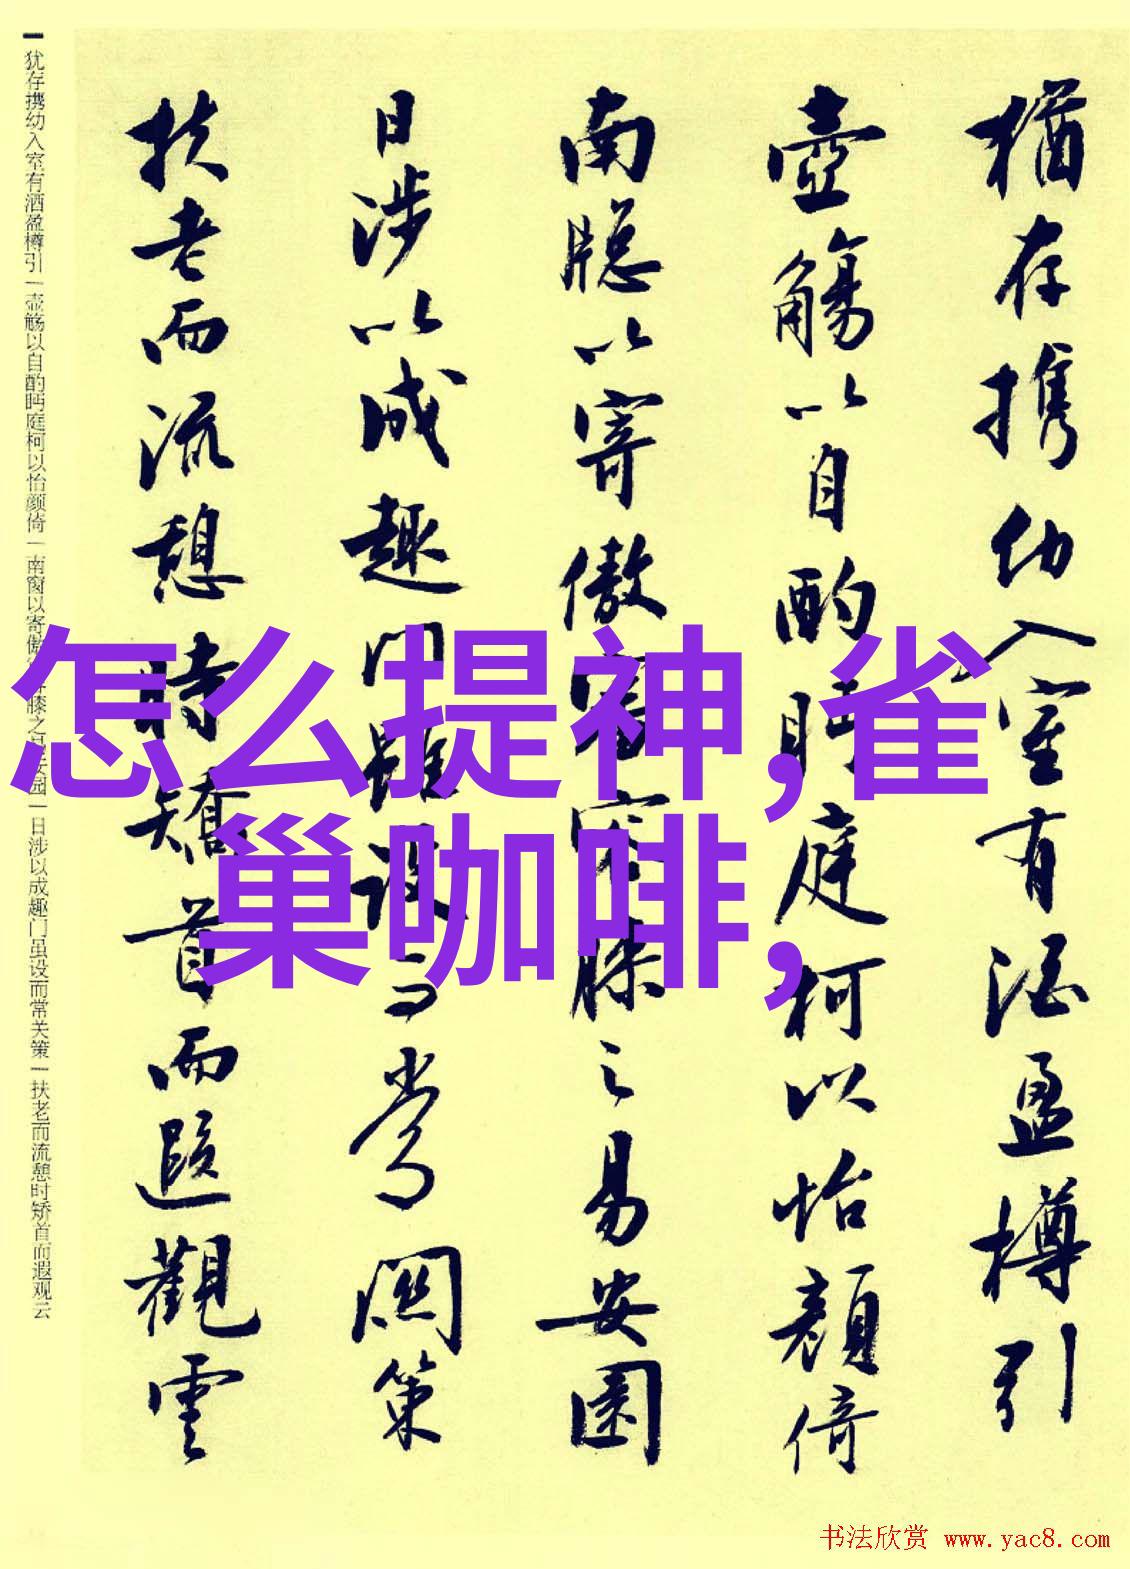 猶存携幼入室有酒盈樽引
壺觴以自酌眄庭柯以怡顔倚
南牕以寄傲審容膝之易安園
日涉以成趣門雖設而常関策
扶老而流憩時矯首而遐觀雲
犹存携幼入室有酒盈樽引|壶觞以自酌眄庭柯以怡颜倚|南窗以寄傲 膝之易安园|日涉以成趣门虽设而常关策|扶老而流憩时矫首而遐观云
怎么提神,雀
巢咖啡,
书法欣赏 www.yac8.com